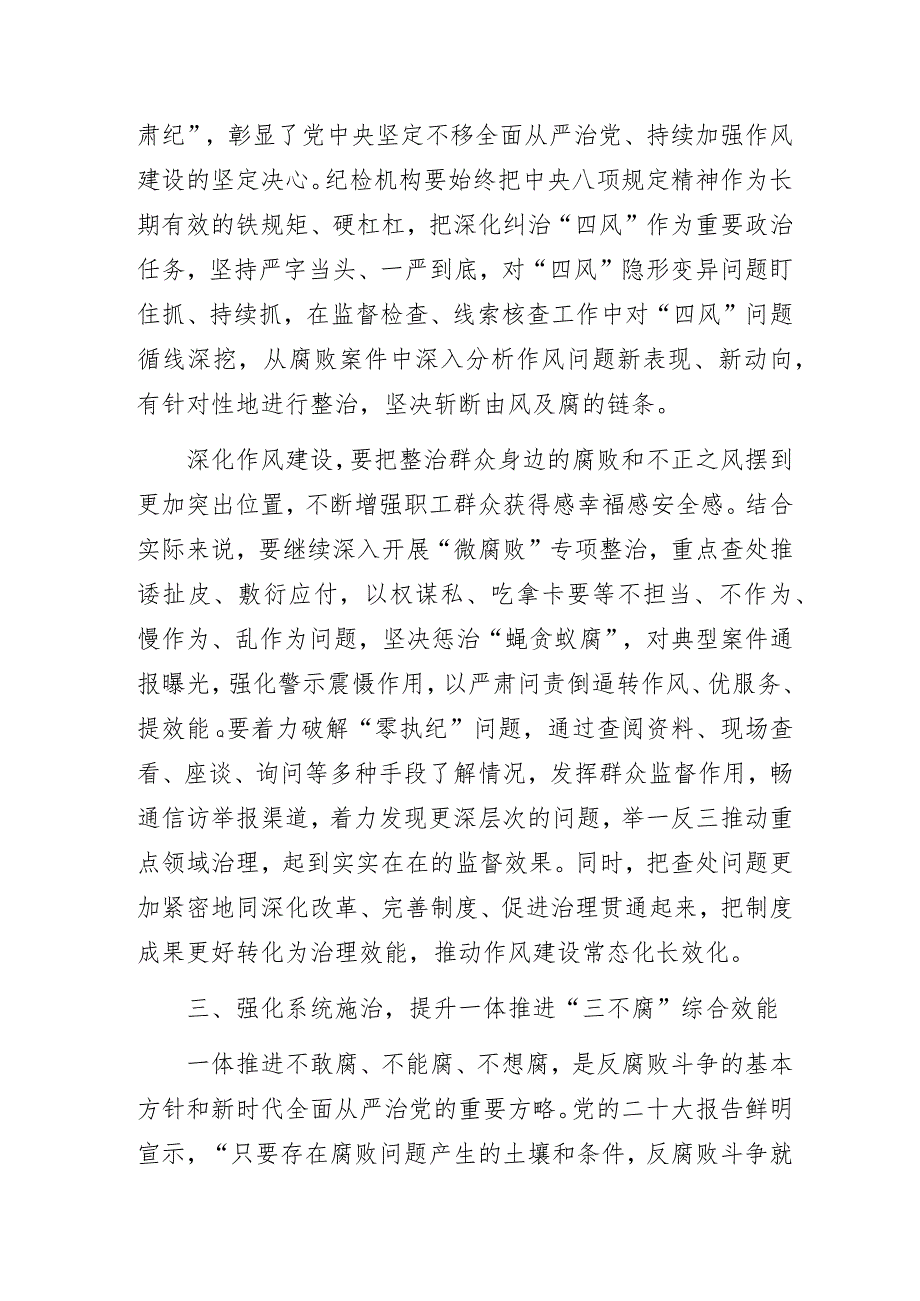 肃纪”，彰显了党中央坚定不移全面从严治党、持续加强作风
建设的坚定决心。纪检机构要始终把中央八项规定精神作为长
期有效的铁规矩、硬杠杠，把深化纠治“四风”作为重要政治
任务，坚持严字当头、一严到底，对“四风”隐形变异问题盯
住抓、持续抓，在监督检查、线索核查工作中对“四风”问题
循线深挖，从腐败案件中深入分析作风问题新表现、新动向，
有针对性地进行整治，坚决斩断由风及腐的链条。
深化作风建设，要把整治群众身边的腐败和不正之风摆到
更加突出位置，不断增强职工群众获得感幸福感安全感。结合
实际来说，要继续深入开展“微腐败”专项整治，重点查处推
诿扯皮、敷衍应付，以权谋私、吃拿卡要等不担当、不作为、
慢作为、乱作为问题，坚决惩治“蝇贪蚁腐”，对典型案件通
报曝光，强化警示震慑作用，以严肃问责倒逼转作风、优服务、
提效能。要着力破解“零执纪”问题，通过查阅资料、现场查
看、座谈、询问等多种手段了解情况，发挥群众监督作用，畅
通信访举报渠道，着力发现更深层次的问题，举一反三推动重
点领域治理，起到实实在在的监督效果。同时，把查处问题更
加紧密地同深化改革、完善制度、促进治理贯通起来，把制度
成果更好转化为治理效能，推动作风建设常态化长效化。
三、强化系统施治，提升一体推进“三不腐”综合效能
一体推进不敢腐、不能腐、不想腐，是反腐败斗争的基本
方针和新时代全面从严治党的重要方略。党的二十大报告鲜明
宣示，“只要存在腐败问题产生的土壤和条件，反腐败斗争就